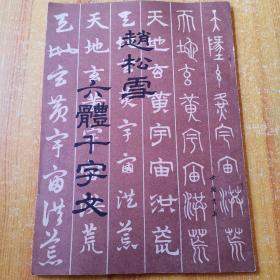 趙松雪
六體千字文
天地玄黃宇宙洪荒
天地玄黃宇宙洪荒
天地玄黃宇宙洪荒
天地玄黃宇宙洪荒
天地玄黃宇宙洪荒
天地玄黃宇宙洪荒